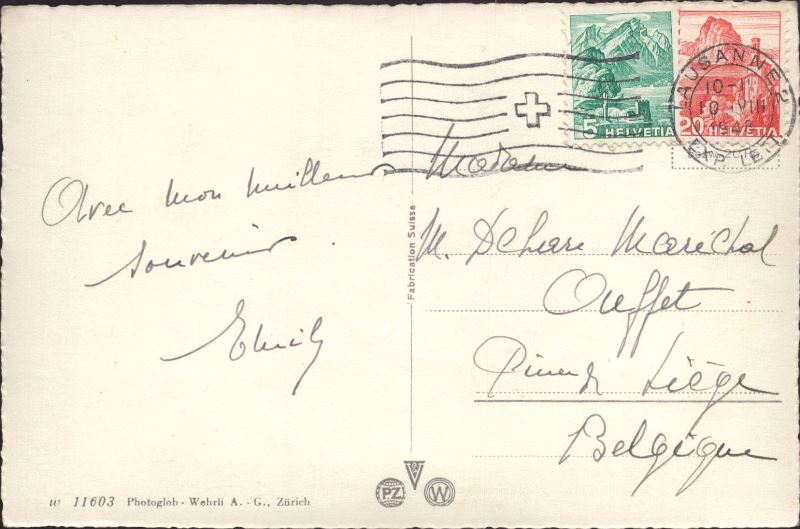 Avec mon meilleur
souvenir
Emily
w 11603 Photoglob - Wehrli A. - G., Zürich
Fabrication Suisse
P.Z.
W
5 HELVETIA
20 HELVETIA
LAUSANNE
10-1
10.VIII
EXP. LETT.
Madame
M. Maréchal
Ouffet
Liège
Belgique